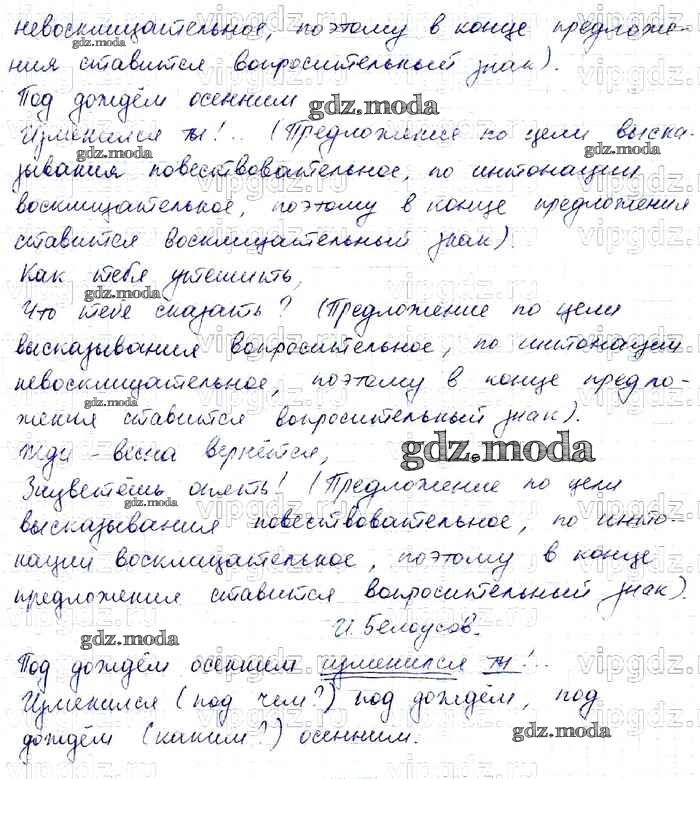 невосклицательное, поэтому в конце предложе-
ния ставится вопросительный знак).
Под дождём осенним
Изменился ты!.. (Предложение по цели выска-
зывания повествовательное, по интонации
восклицательное, поэтому в конце предложения
ставится восклицательный знак)
Как тебя утешить,
Что тебе сказать? (Предложение по цели
высказывания вопросительное, по интонации
невосклицательное, поэтому в конце предло-
жения ставится вопросительный знак).
Жди - весна вернётся,
Зацветёшь опять! (Предложение по цели
высказывания повествовательное, по инто-
нации восклицательное, поэтому в конце
предложения ставится вопросительный знак).
И. Белоусов.
Под дождём осенним изменился ты!..
Изменился (под чем?) под дождём, под
дождём (каким?) осенним.
gdz.moda
vipgdz.ru